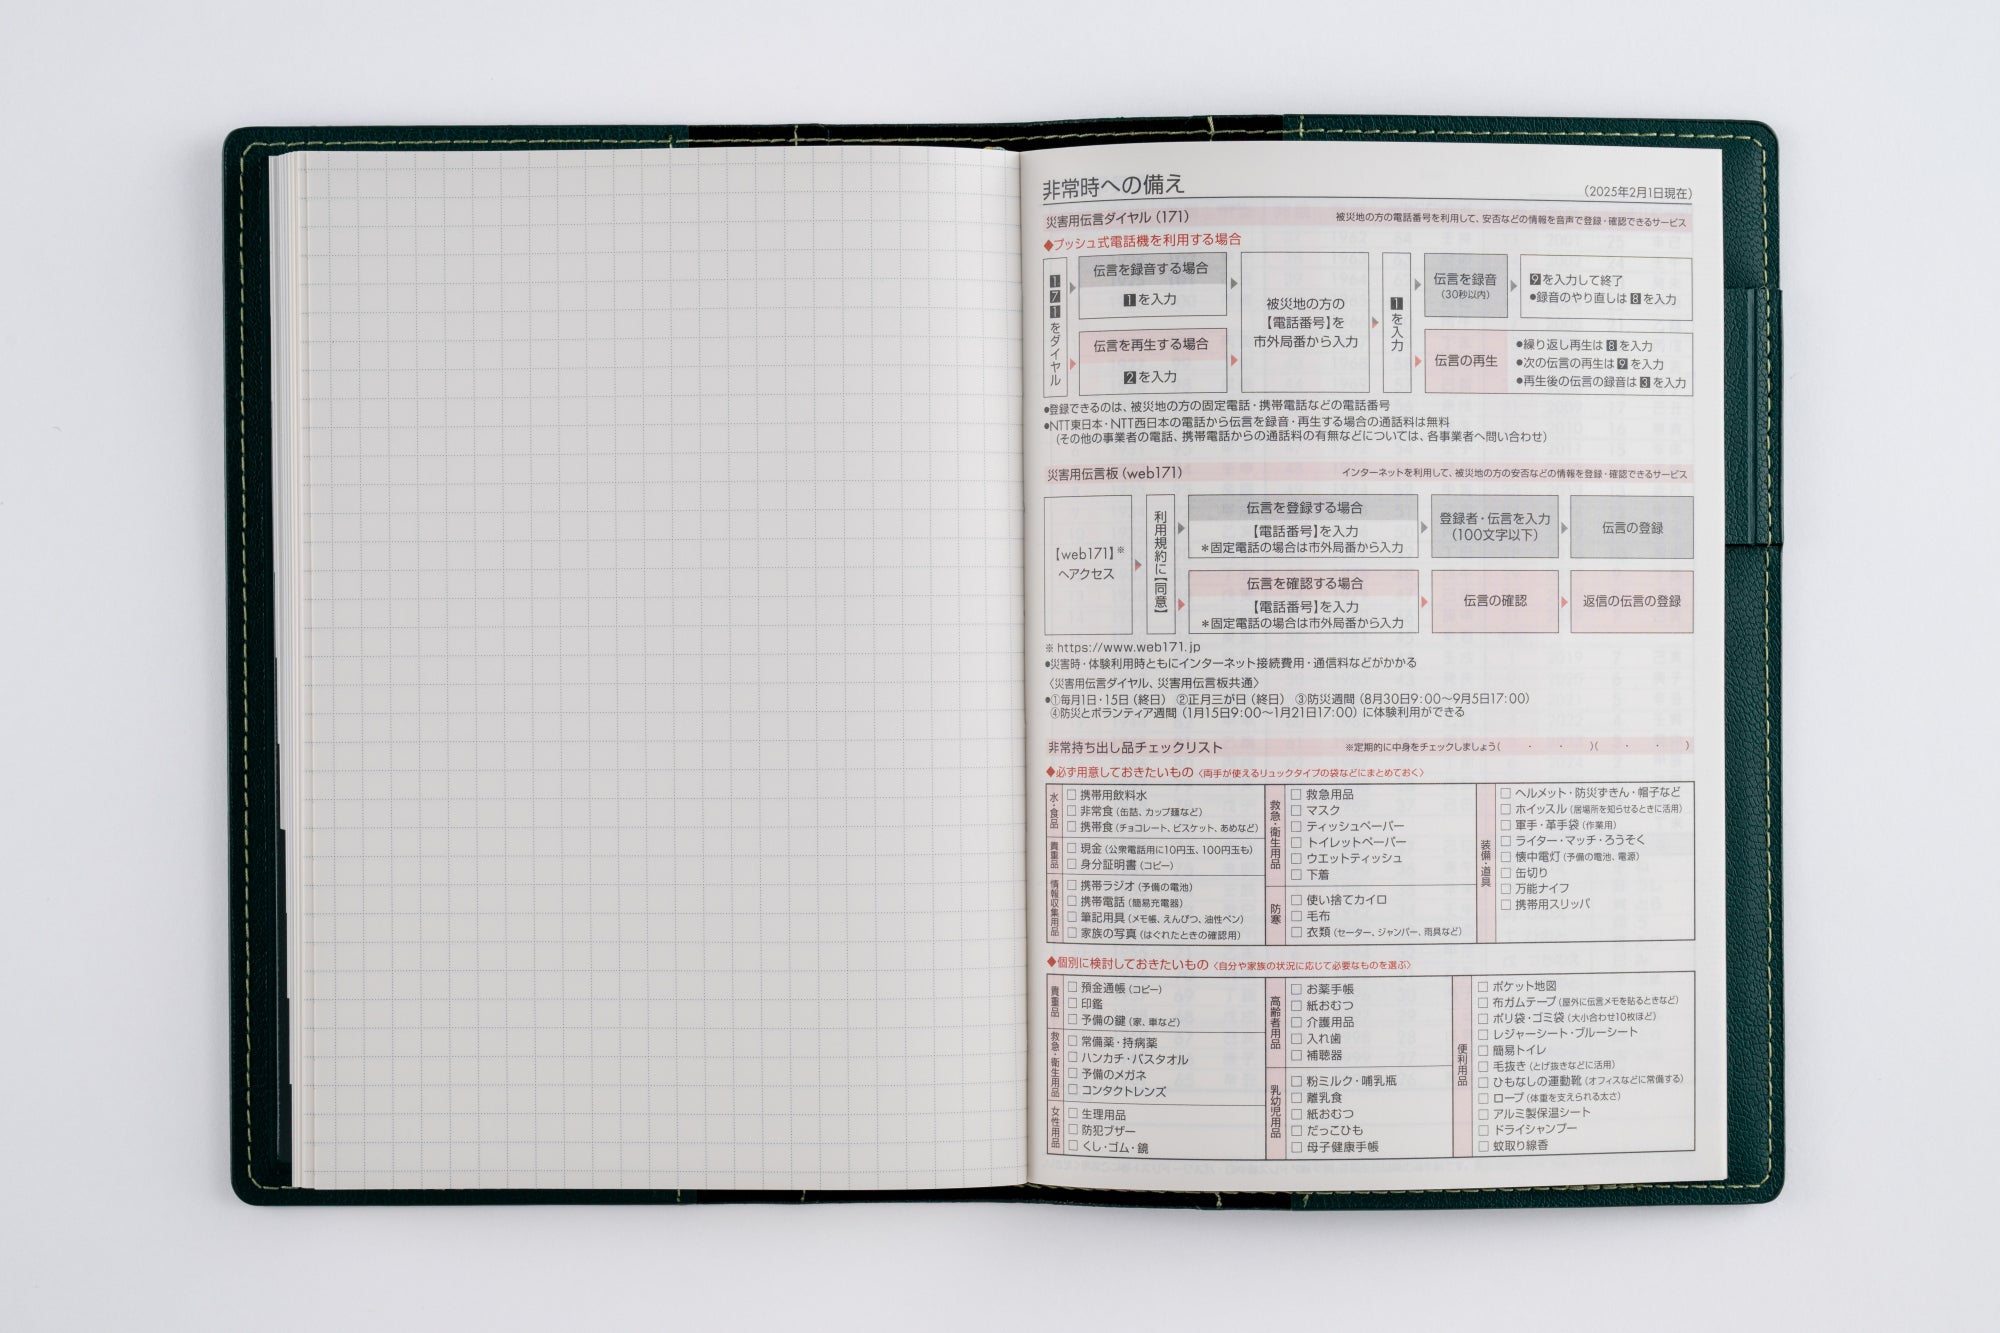 非常時への備え
(2025年2月1日現在)
災害用伝言ダイヤル(171)
被災地の方の電話番号を利用して、安否などの情報を音声で登録・確認できるサービス
◆プッシュ式電話機を利用する場合
171をダイヤル
伝言を録音する場合
1を入力
伝言を再生する場合
2を入力
被災地の方の
【電話番号】を
市外局番から入力
1を入力
伝言を録音
(30秒以内)
9を入力して終了
●録音のやり直しは8を入力
伝言の再生
●繰り返し再生は8を入力
●次の伝言の再生は9を入力
●再生後の伝言の録音は3を入力
●登録できるのは、被災地の方の固定電話・携帯電話などの電話番号
●NTT東日本・NTT西日本の電話から伝言を録音・再生する場合の通話料は無料
(その他の事業者の電話、携帯電話からの通話料の有無などについては、各事業者へ問い合わせ)
災害用伝言板(web171)
インターネットを利用して、被災地の方の安否などの情報を登録・確認できるサービス
【web171】※
へアクセス
利用規約に【同意】
伝言を登録する場合
【電話番号】を入力
*固定電話の場合は市外局番から入力
登録者・伝言を入力
(100文字以下)
伝言の登録
伝言を確認する場合
【電話番号】を入力
*固定電話の場合は市外局番から入力
伝言の確認
返信の伝言の登録
※ https://www.web171.jp
●災害時・体験利用時ともにインターネット接続費用・通信料などがかかる
〈災害用伝言ダイヤル、災害用伝言板共通〉
●①毎月1日・15日(終日) ②正月三が日(終日) ③防災週間(8月30日9:00〜9月5日17:00)
④防災とボランティア週間(1月15日9:00〜1月21日17:00)に体験利用ができる
非常持ち出し品チェックリスト
※定期的に中身をチェックしましょう( ・ ・ )( ・ ・ )
◆必ず用意しておきたいもの〈両手が使えるリュックタイプの袋などにまとめておく〉
水・食品
□ 携帯用飲料水
□ 非常食(缶詰、カップ麺など)
□ 携帯食(チョコレート、ビスケット、あめなど)
貴重品
□ 現金(公衆電話用に10円玉、100円玉も)
□ 身分証明書(コピー)
情報収集用品
□ 携帯ラジオ(予備の電池)
□ 携帯電話(簡易充電器)
□ 筆記用具(メモ帳、えんぴつ、油性ペン)
□ 家族の写真(はぐれたときの確認用)
救急・衛生用品
□ 救急用品
□ マスク
□ ティッシュペーパー
□ トイレットペーパー
□ ウエットティッシュ
□ 下着
防寒
□ 使い捨てカイロ
□ 毛布
□ 衣類(セーター、ジャンパー、雨具など)
装備・道具
□ ヘルメット・防災ずきん・帽子など
□ ホイッスル(居場所を知らせるときに活用)
□ 軍手・革手袋(作業用)
□ ライター・マッチ・ろうそく
□ 懐中電灯(予備の電池、電源)
□ 缶切り
□ 万能ナイフ
□ 携帯用スリッパ
◆個別に検討しておきたいもの〈自分や家族の状況に応じて必要なものを選ぶ〉
貴重品
□ 預金通帳(コピー)
□ 印鑑
□ 予備の鍵(家、車など)
救急・衛生用品
□ 常備薬・持病薬
□ ハンカチ・バスタオル
□ 予備のメガネ
□ コンタクトレンズ
女性用品
□ 生理用品
□ 防犯ブザー
□ くし・ゴム・鏡
高齢者用品
□ お薬手帳
□ 紙おむつ
□ 介護用品
□ 入れ歯
□ 補聴器
乳幼児用品
□ 粉ミルク・哺乳瓶
□ 離乳食
□ 紙おむつ
□ だっこひも
□ 母子健康手帳
便利用品
□ ポケット地図
□ 布ガムテープ(屋外に伝言メモを貼るときなど)
□ ポリ袋・ゴミ袋(大小合わせ10枚ほど)
□ レジャーシート・ブルーシート
□ 簡易トイレ
□ 毛抜き(とげ抜きなどに活用)
□ ひもなしの運動靴(オフィスなどに常備する)
□ ロープ(体重を支えられる太さ)
□ アルミ製保温シート
□ ドライシャンプー
□ 蚊取り線香